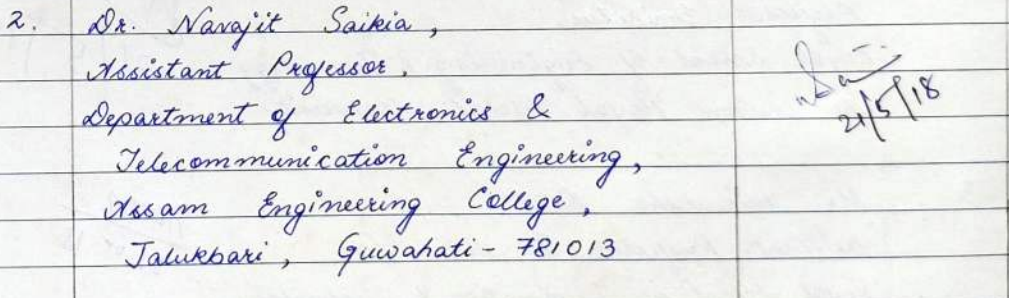 2. Dr. Navajit Saikia,
Assistant Professor,
Department of Electronics &
Telecommunication Engineering,
Assam Engineering College,
Jalukbari, Guwahati - 781013
21/5/18